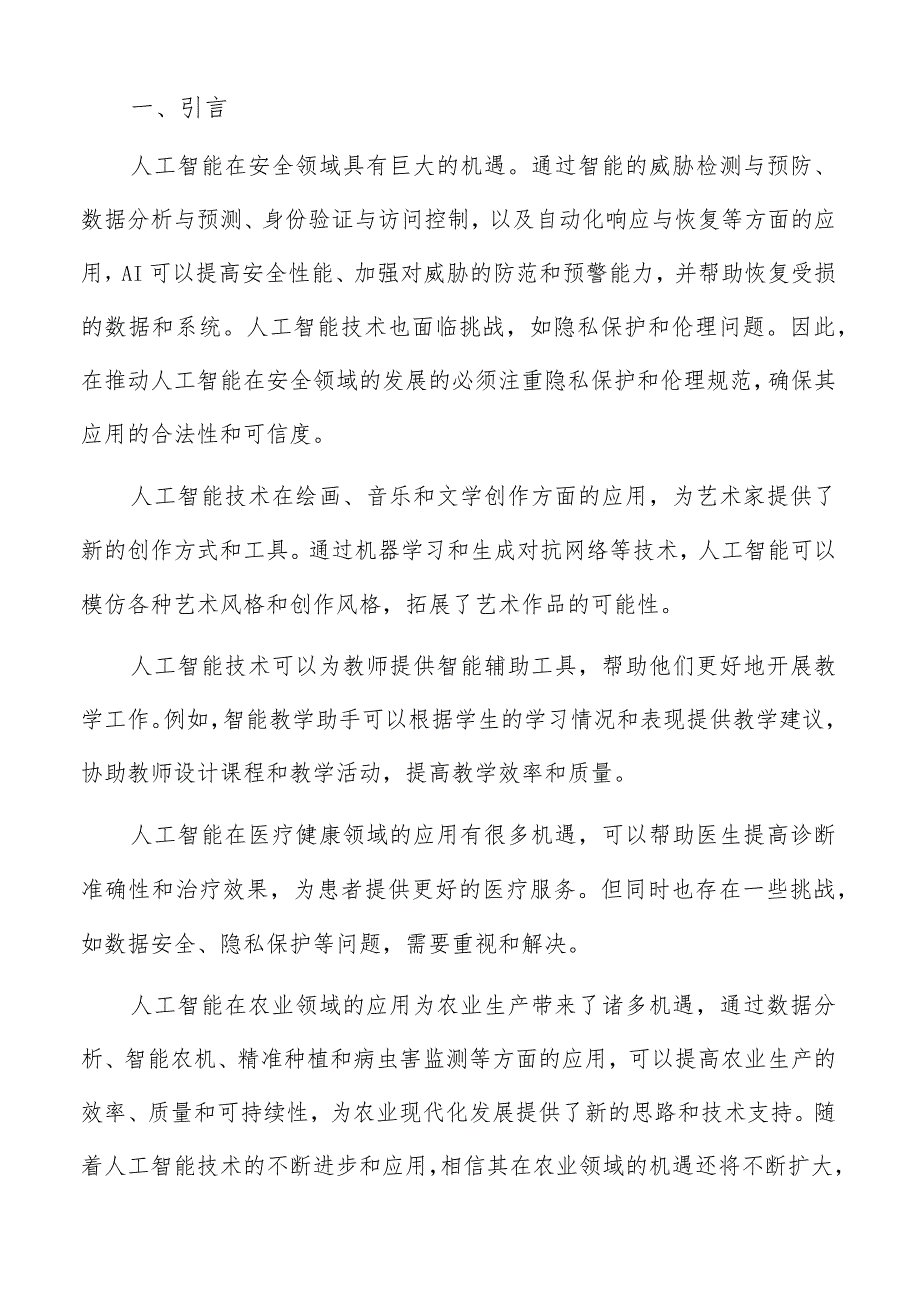 一、引言
人工智能在安全领域具有巨大的机遇。通过智能的威胁检测与预防、
数据分析与预测、身份验证与访问控制，以及自动化响应与恢复等方面的应
用，AI可以提高安全性能、加强对威胁的防范和预警能力，并帮助恢复受损
的数据和系统。人工智能技术也面临挑战，如隐私保护和伦理问题。因此，
在推动人工智能在安全领域的发展的必须注重隐私保护和伦理规范，确保其
应用的合法性和可信度。
人工智能技术在绘画、音乐和文学创作方面的应用，为艺术家提供了
新的创作方式和工具。通过机器学习和生成对抗网络等技术，人工智能可以
模仿各种艺术风格和创作风格，拓展了艺术作品的可能性。
人工智能技术可以为教师提供智能辅助工具，帮助他们更好地开展教
学工作。例如，智能教学助手可以根据学生的学习情况和表现提供教学建议，
协助教师设计课程和教学活动，提高教学效率和质量。
人工智能在医疗健康领域的应用有很多机遇，可以帮助医生提高诊断
准确性和治疗效果，为患者提供更好的医疗服务。但同时也存在一些挑战，
如数据安全、隐私保护等问题，需要重视和解决。
人工智能在农业领域的应用为农业生产带来了诸多机遇，通过数据分
析、智能农机、精准种植和病虫害监测等方面的应用，可以提高农业生产的
效率、质量和可持续性，为农业现代化发展提供了新的思路和技术支持。随
着人工智能技术的不断进步和应用，相信其在农业领域的机遇还将不断扩大，